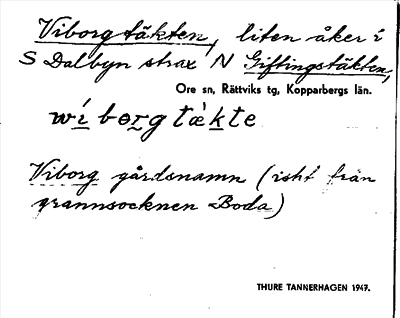 Viborgtäkten, liten åker i
S Dalbyn strax N Giftingstäkten,
Ore sn, Rättviks tg, Kopparbergs län.
wí bərgtæ̀kte
Viborg gårdsnamn (isht från
grannsocknen Boda)
THURE TANNERHAGEN 1947.